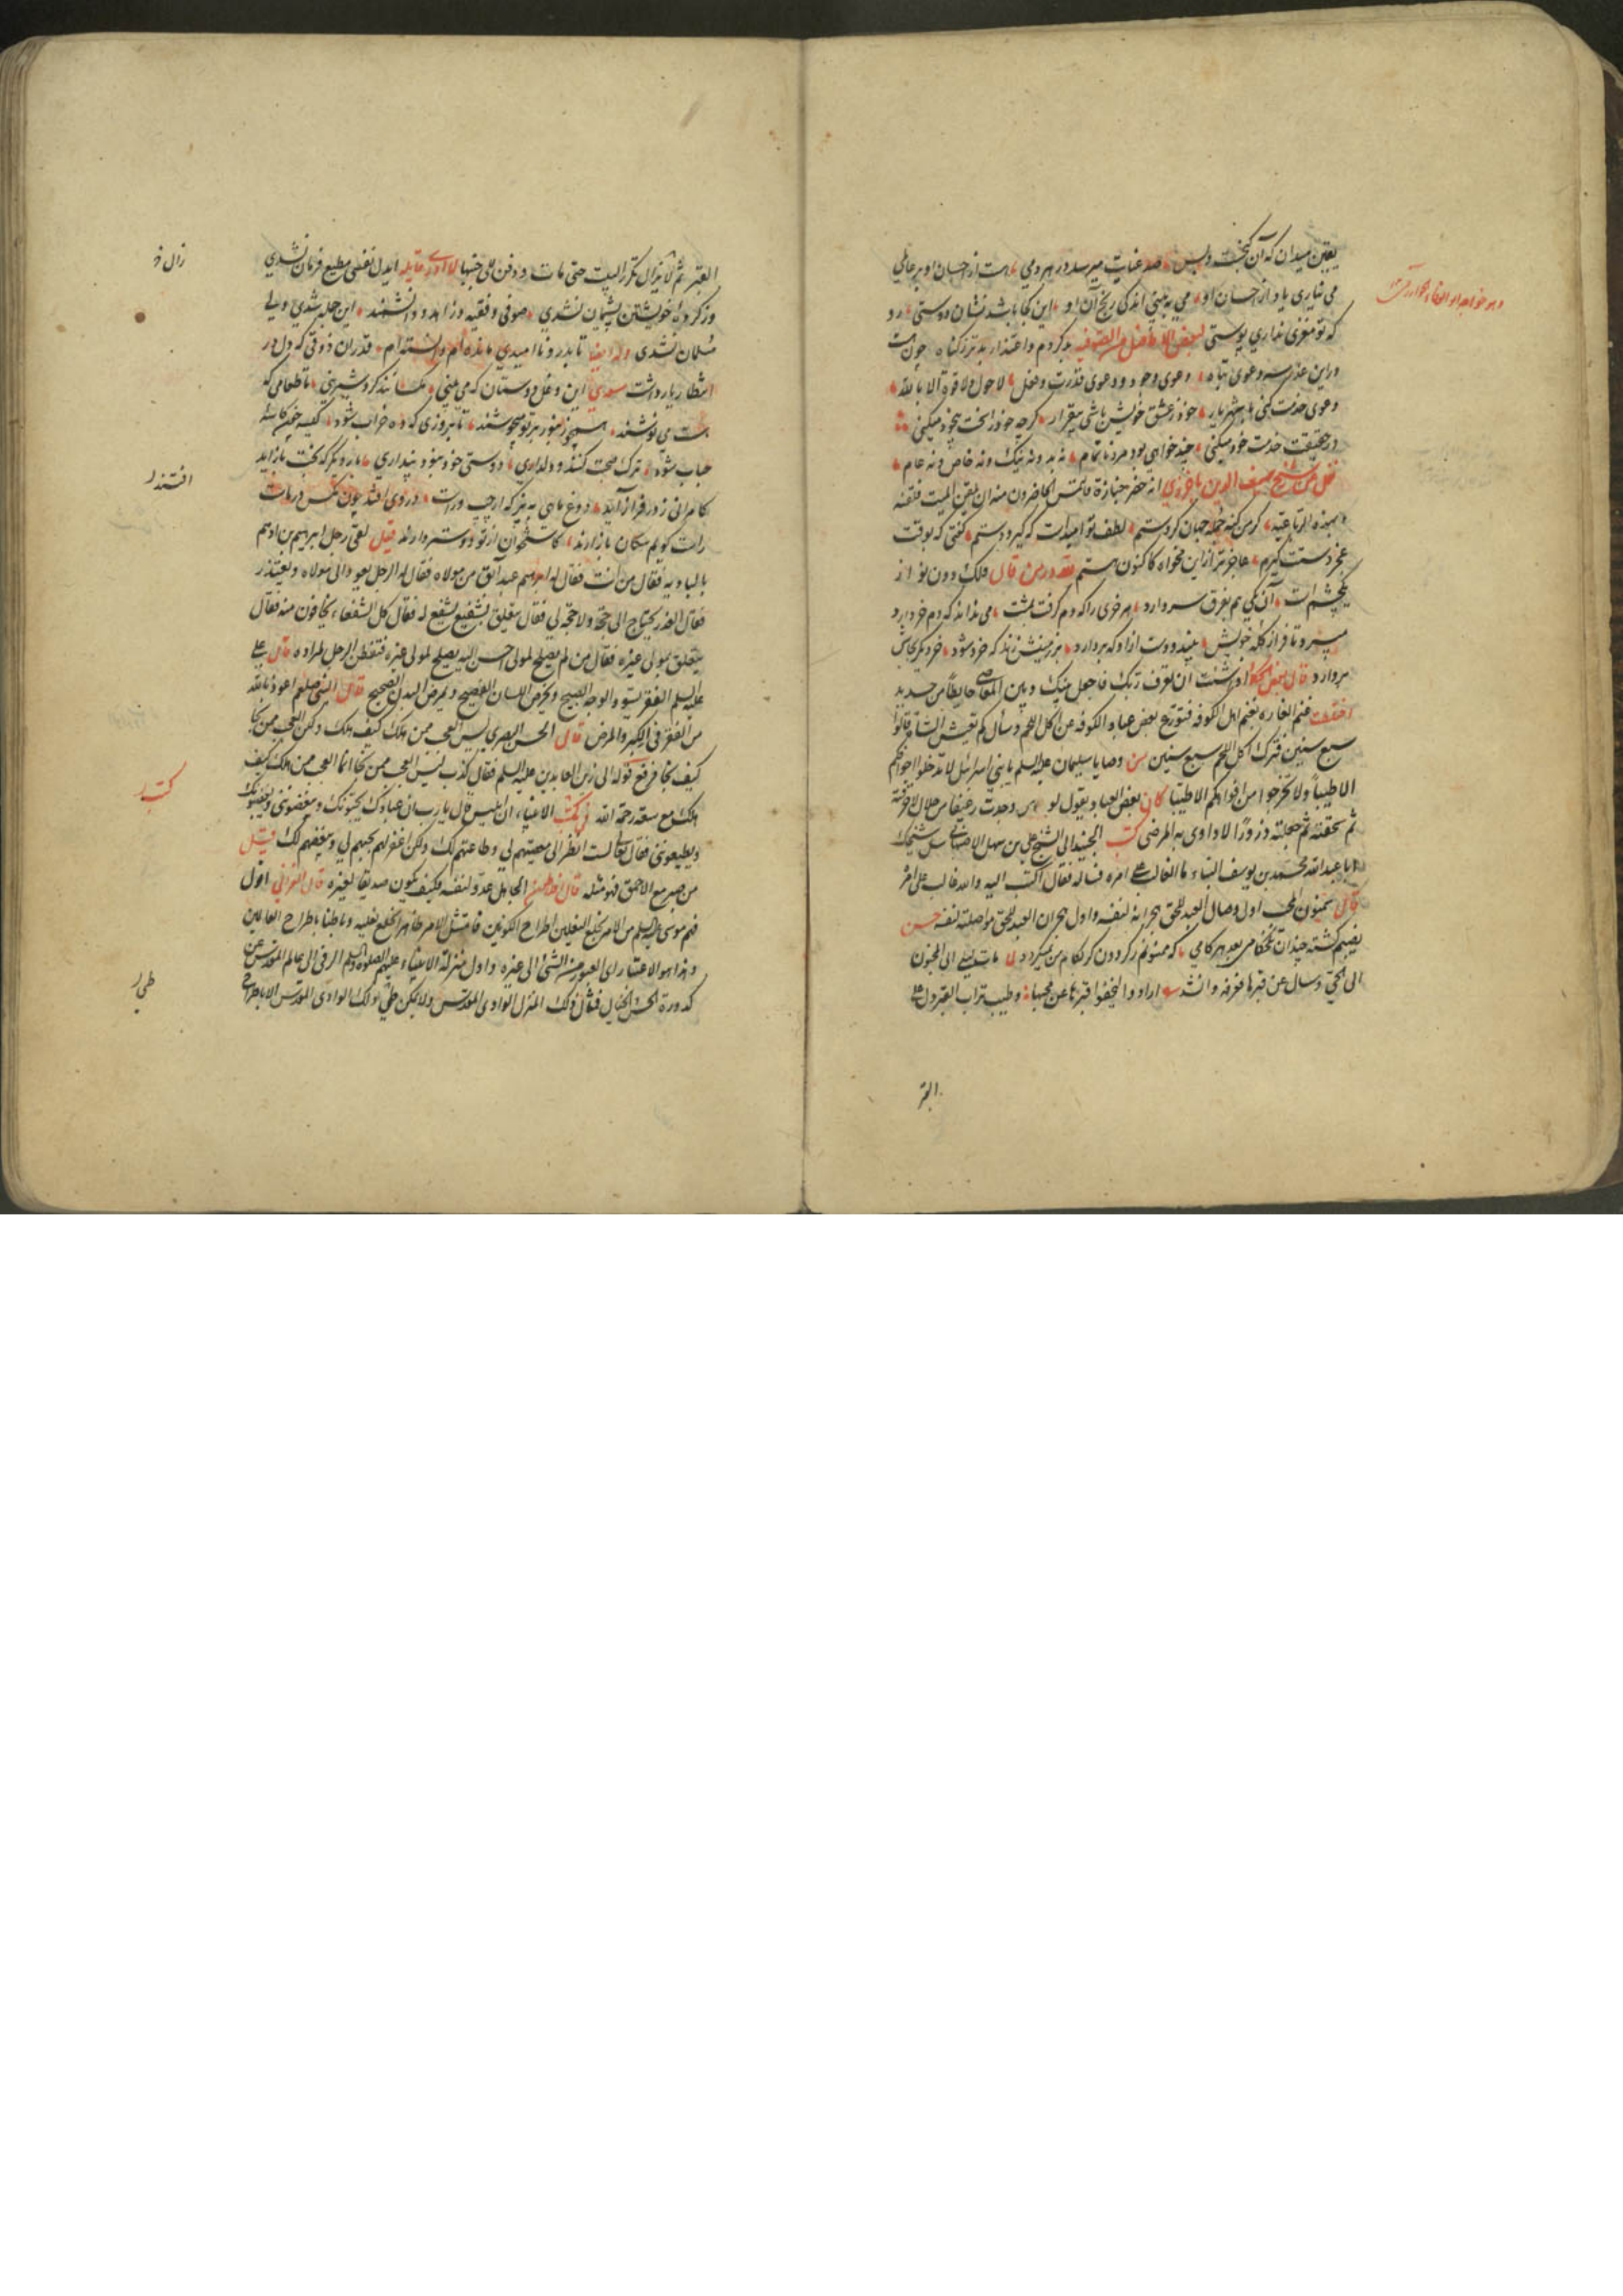 یقین میدان که آن بخت و بس صد عنایت میرسد در هر دمی هست از احسان او بر عالمی
می نیاری یاد از احسان او می به بینی اندکی رنج آن او این کجا باشد نشان دوستی رو
که تو مغزی نداری پوستی لبعض الافاضل من الصوفیه بد کردم و اعتذار بدتر ز گناه چون هست
درین عذر سه دعوی تباه دعوی وجود و دعوی قدرت و فعل لا حول ولا قوة الا بالله
دعوی خدمت کنی با شهریار خود ز عشق خویش باشی بیقرار گرچه خود را سخت بیخود میکنی
در حقیقت خدمت خود میکنی چند خواهی بود مرد ناتمام نه بد و نه نیک و نه خاص و نه عام
نقل من شیخ سیف الدین باخرزی انه حضر جنازة فالتمس الحاضرون منه ان یلقن المیت فلقنه
بهذه الرباعیه گر من گنه جمله جهان کردستم لطف تو امیدست که گیرد دستم گفتی که بوقت
عجز دستت گیرم عاجزتر ازین مخواه کاکنون هستم لله در من قال فلک دون نواز
یکچشم است آن یکی هم بفرق سر دارد هر خری را که دم گرفت بمشت می نداند که دم خر دارد
میبرد تا فراز کله خویش بیند و دست ازو که بردارد بر زمینش زند که خرد شود خر دیگر بجاش
بردارد قال بعض الحکما اذا شئت ان تعرف ربک فاجعل بینک و بین المعاصی حایطا من حدید
اختلطت غنم الغاره بغنم اهل الکوفه فتورع بعض عباد الکوفه عن اکل اللحم و سأل کم تعیش الشاة قالوا
سبع سنین فترک اکل اللحم سبع سنین من وصایا سلیمان علیه السلم یا بنی اسرائیل لا تدخلوا اجوافکم
الا طیبا ولا تخرجوا من افواهکم الا طیبا کان بعض العباد یقول لو وجدت رغیفا من حلال لاحرقته
ثم سحقته ثم جعلته ذرورا لاداوی به المرضی کتب الجنید الی الشیخ علی بن سهل الاصبهانی سل شیخک
ابا عبدالله محمد بن یوسف البناء ما الغالب علی امره فساله فقال اکتب الیه والله غالب علی امره
قال سمنون المحب اول وصال العبد للحق هجرانه لنفسه و اول هجران العبد للحق مواصلته لنفسه حسن
نصیبم گشته چندان تلخکامی بعد هر کامی که ممنونم ز گردون گر بکام من نمیگردد لما مات لیلی اتی المجنون
الی الحی و سال عن قبرها فعرفه و انشد ارادوا لیخفوا قبرها عن محبها و طیب تراب القبر دل علی
القبر
القبر ثم لا یزال یکرر البیت حتی مات و دفن الی جنبها لا ادری قایله ایدل نفسی مطیع فرمان نشدی
وز کرده خویشتن پشیمان نشدی صوفی و فقیه و زاهد و دانشمند این جمله شدی ولی
مسلمان نشدی وله ایضا تا بدر و ناامیدی مانده ام دانسته ام قدر آن ذوقی که دل در
انتظار یار داشت سعدی این دغل دوستان که می بینی مگسانند گرد شیرینی تا طعامی که
هست می نوشند همچو زنبور بر تو میجوشند تا بروزی که ده خراب شود کیسه چون کاسه
رباب شود ترک صحبت کنند و دلداری دوستی خود نبود پنداری بار دیگر که بخت باز آید
کامرانی ز در فراز آید دوغ بائی بپز که از چپ و راست در وی افتند چون مگس در ماست
راست گویم سگان بازارند کاستخوان از تو دوستر دارند قیل لقی رجل ابرهیم بن ادهم
بالبادیه فقال من انت فقال له ابراهیم عبد ابق من مولاه فقال له الرجل یعود الی مولاه و یعتذر
فقال العذر یحتاج الی حجة ولا حجة لی فقال یتعلق بشفیع یشفع له فقال کل الشفعاء یخافون منه فقال
یتعلق بمولی غیره فقال من لم یصلح لمولی احسن الیه یصلح لمولی غیره فتفطن الرجل لمراده قال علی
علیه السلم الفقر یسود الوجه الصبیح و یخرس اللسان الفصیح و یمرض البدن الصحیح قال النبی صلعم اعوذ بالله
من الفقر فی الکبر والمرض قال الحسن البصری لیس العجب ممن هلک کیف هلک و لکن العجب ممن نجا
کیف نجا فرفع قوله الی زین العابدین علیه السلم فقال کذب لیس العجب ممن نجا انما العجب ممن هلک کیف
هلک مع سعة رحمة الله فی کتب الانبیاء ان ابلیس قال یا رب ان عبادک یحبونک و یعصونک و یبغضوننی
و یطیعوننی فقال تعالی لست انظر الی معصیتهم لی و طاعتهم لک ولکن اغفر لهم بحبهم لی و بغضهم لک قیل
من صبر مع الاحمق فهو مثله قال افلاطون الجاهل عدو لنفسه فکیف یکون صدیقا لغیره قال الغزالی اقول
فهم موسی علیه السلم من الامر بخلع النعلین اطراح الکونین فامتثل الامر ظاهرا بخلع نعلیه و باطنا باطراح العالمین
و هذا هو الاعتبار ای العبور من الشئ الی غیره و اول منزلة الانبیاء علیهم الصلوة والسلم الرقی الی عالم المقدس عن
کدورة الحس والخیال فمثال ذلک المنزل الوادی المقدس ولا یمکن وطئ ذلک الوادی المقدس الا باطراح
افتند
کتب